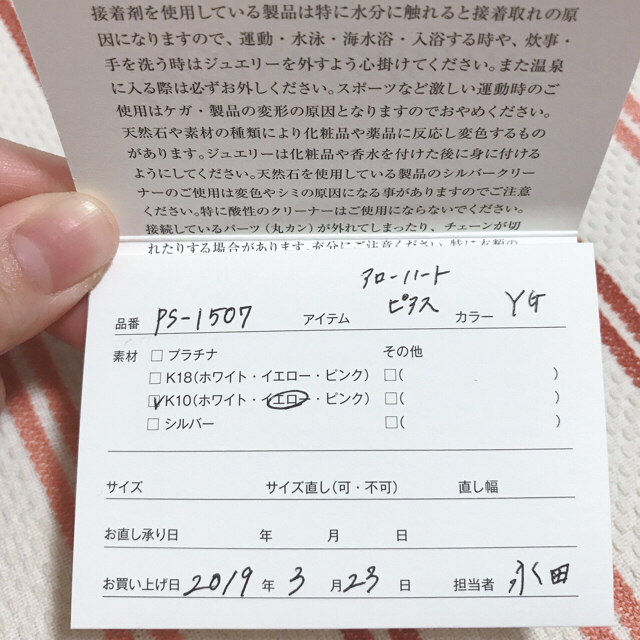 接着剤を使用している製品は特に水分に触れると接着取れの原
因になりますので、運動・水泳・海水浴・入浴する時や、炊事・
手を洗う時はジュエリーを外すよう心掛けてください。また温泉
に入る際は必ずお外しください。スポーツなど激しい運動時のご
使用はケガ・製品の変形の原因となりますのでおやめください。
天然石や素材の種類により化粧品や薬品に反応し変色するもの
があります。ジュエリーは化粧品や香水を付けた後に身に付ける
ようにしてください。天然石を使用している製品のシルバークリー
ナーのご使用は変色やシミの原因になる事がありますのでご注意
ください。特に酸性のクリーナーはご使用にならないでください。
接続しているパーツ(丸カン)が外れてしまったり、チェーンが切
れたりする場合があります。充分にご注意ください。特に衣類の
アローハート
品番 PS-1507 アイテム ピアス カラー YG
素材 □ プラチナ その他
□ K18(ホワイト・イエロー・ピンク) □( )
☑ K10(ホワイト・イエロー・ピンク) □( )
□ シルバー □( )
サイズ サイズ直し(可・不可) 直し幅
お直し承り日 年 月 日
お買い上げ日 2019 年 3 月 23 日 担当者 永田